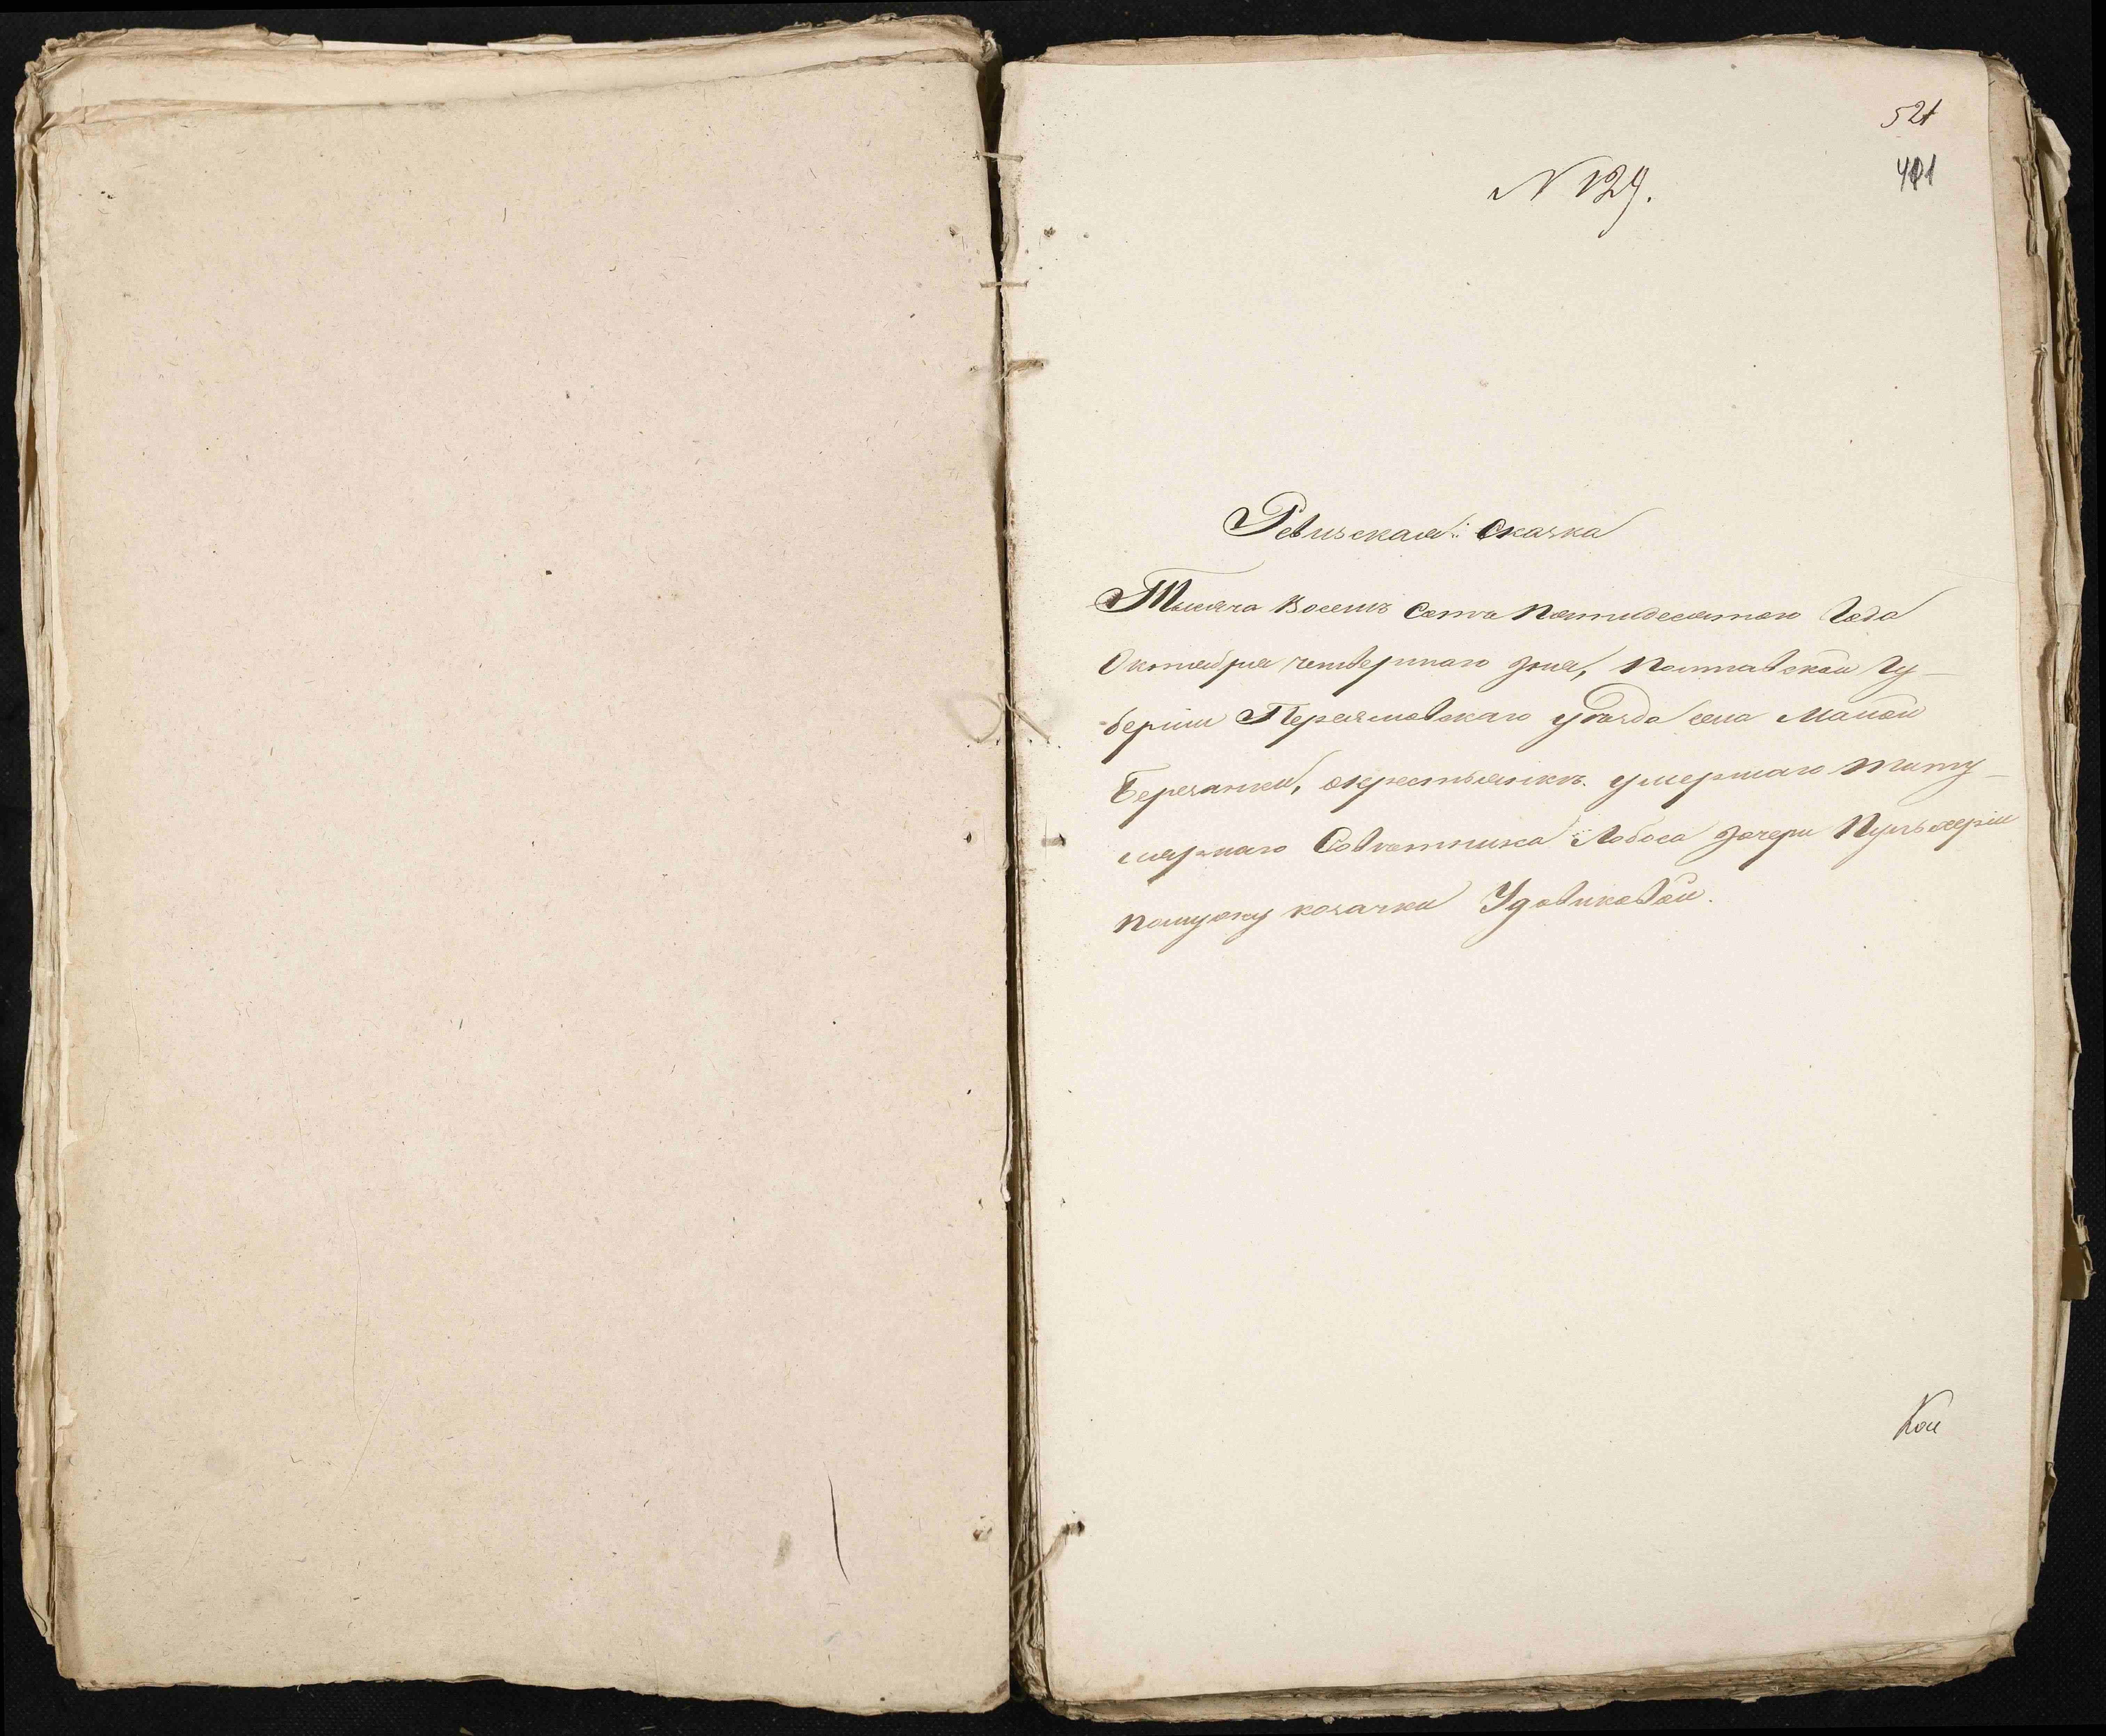 521
401
N 129.
Ревизская Сказка
Тысяча восемь сотъ пятидесятого года
Октября четвертаго дня, Полтавской гу-
берніи Переяславскаго уѣзда села Малой
Березанки, окрестьянкъ умершаго титу-
лярнаго Совѣтника Лобоса дочери Пульхеріи
помужу козачки Удовиковой.
Кои